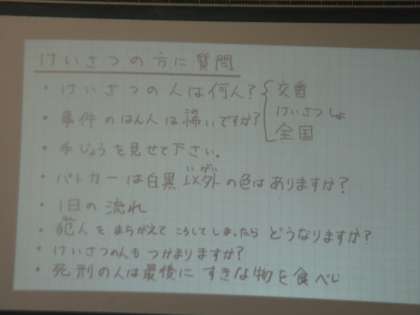 けいさつの方に質問
・けいさつの人は何人?
交番
けいさつしょ
全国
・事件のはん人は怖いですか?
・手じょうを見せて下さい。
・パトカーは白黒以外の色はありますか?
いがい
・1日の流れ
・犯人をまちがえてころしてしまったらどうなりますか?
・けいさつの人もつかまりますか?
・死刑の人は最後にすきな物を食べ